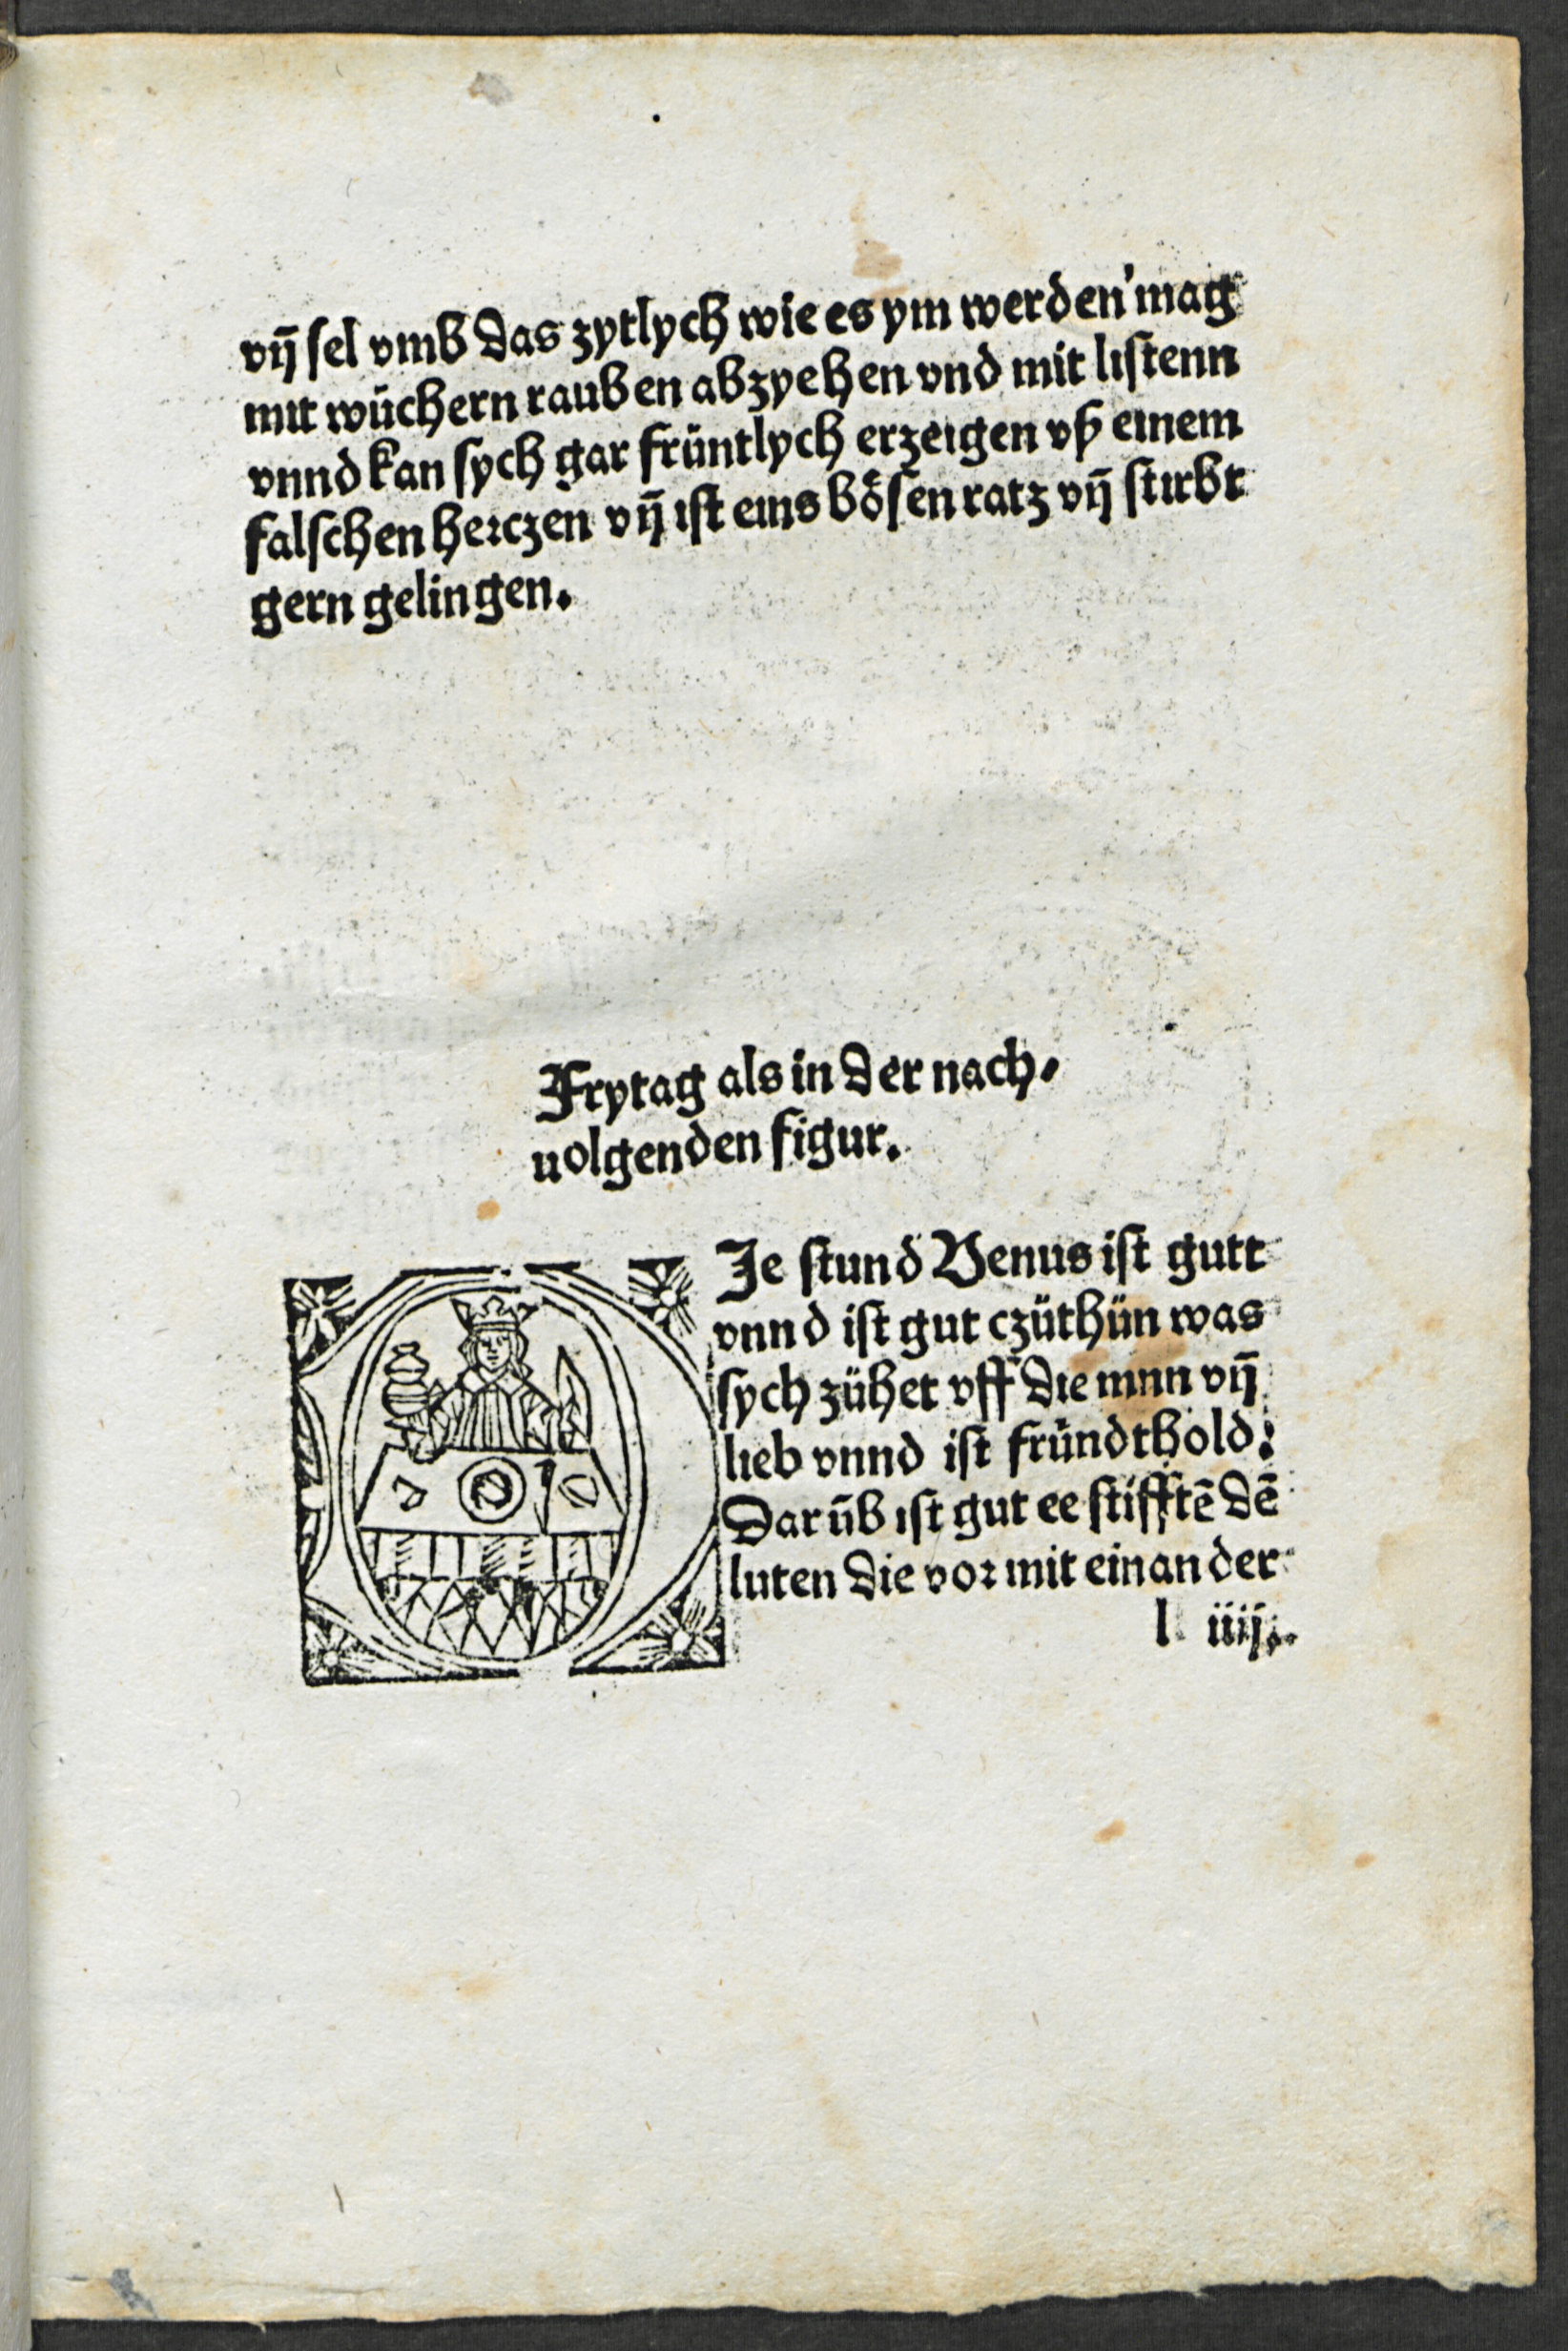 vn̄ sel vmb das zytlych wie es ym werden mag
mit wüchern rauben abzyehen vnd mit listenn
vnnd kan sych gar früntlych erzeigen vß einem
falschen herczen vn̄ ist eins bösen ratz vn̄ stirbt
gern gelingen.
Frytag als in der nach⸗
uolgenden figur.
DJe stund Venus ist gutt
vnnd ist gut czüthün was
sych zühet vff die minn vn̄
lieb vnnd ist fründthold:
Dar ūb ist gut ee stifftē dē
luten die vor mit einander
l iiij.